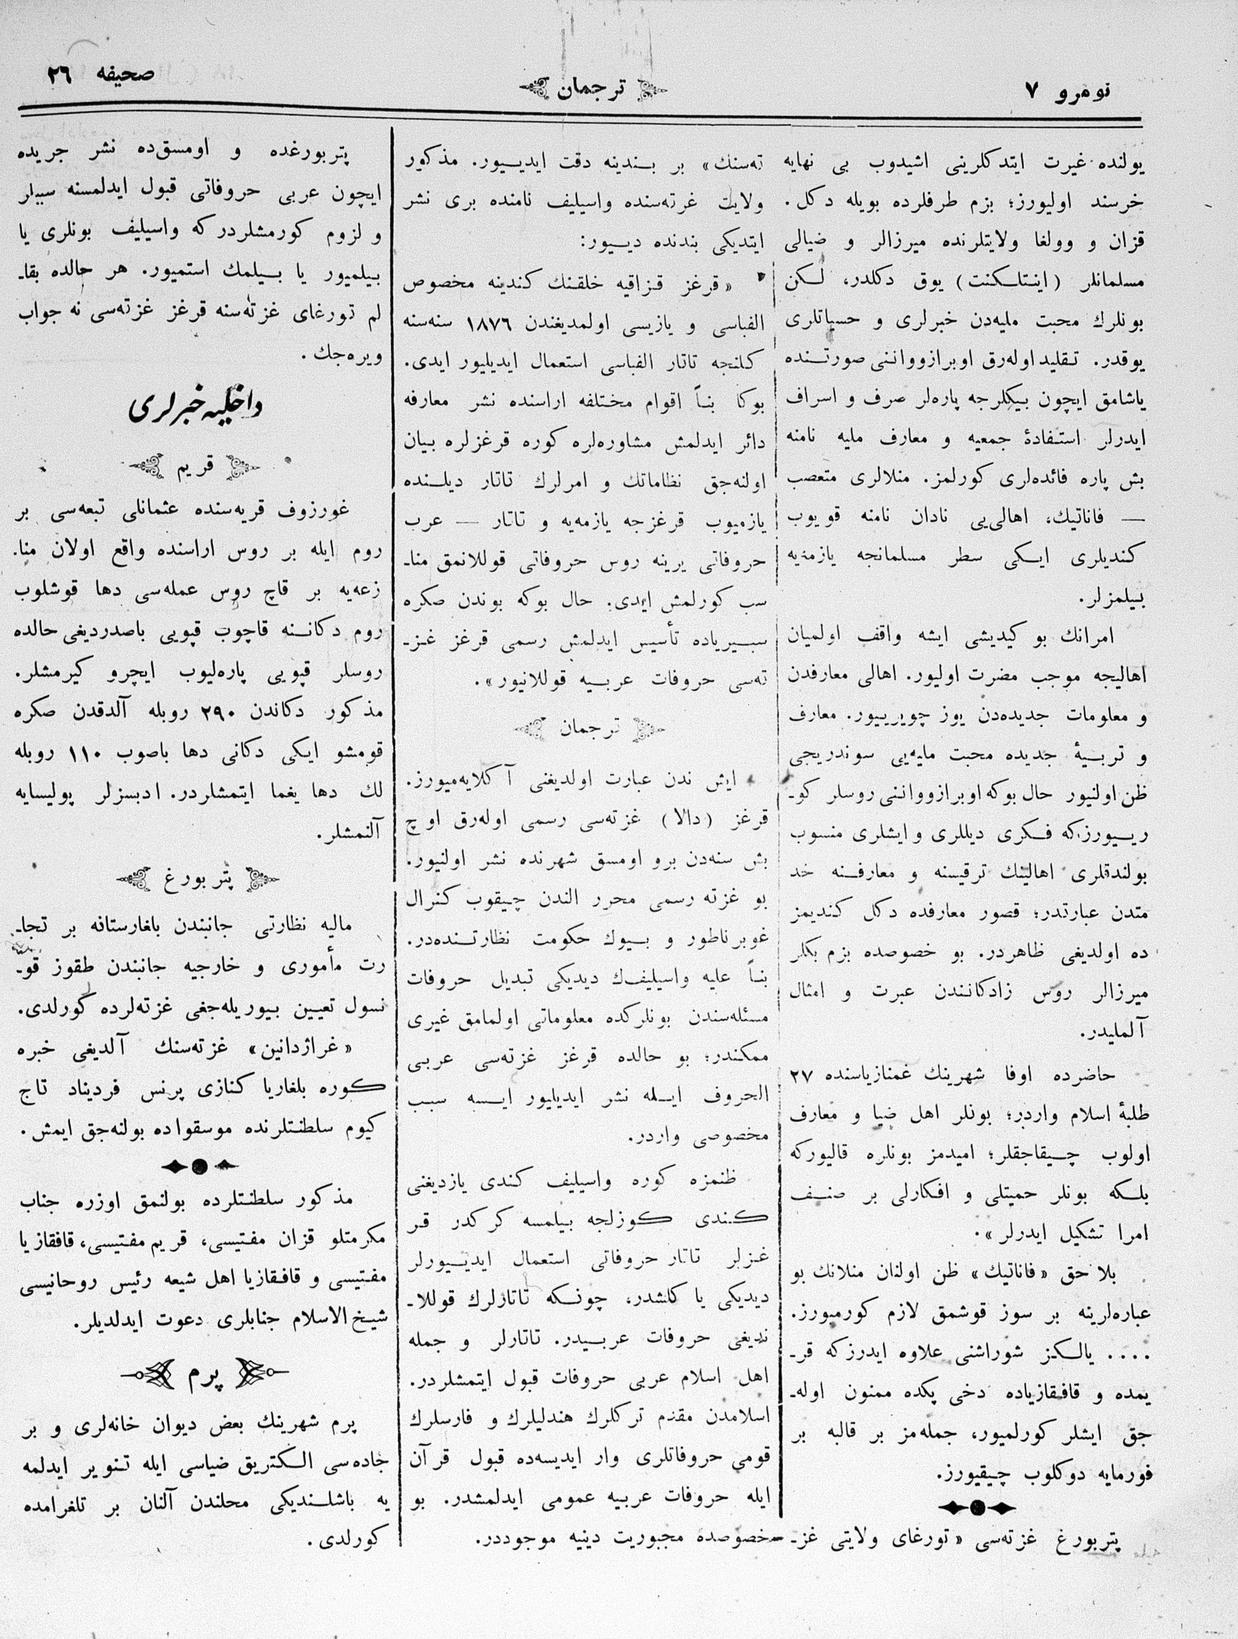 نومرو ٧
ترجمان
صحیفه ٢٦
یولنده غیرت ایتدكلرینی اشیدوب بی نهایه
خرسند اولیورز؛ بزم طرفلرده بویله دكل.
قزان و وولغا ولایتلرنده میرزالر و ضیالی
مسلمانلر (اینتلـكنت) یوق دكلدر، لـكن
بونلرك محبت ملیه‌دن خبرلری و حسیاتلری
یوقدر. تـقلید اوله‌رق اوبرازوواننی صورتـنده
یاشامق ایچون بیكلرجه پاره‌لر صرف و اسراف
ایدرلر استـفادۀ جمعیه و معارف ملیه نامنه
بش پاره فائده‌لری كورلمز. منلالری متعصب
— فاناتیك، اهالی‌یی نادان نامنه قویوب
كندیلری ایـكی سطر مسلمانجه یازمغه
بیلمزلر.
امرانك بو كیدیشی ایشه واقف اولمیان
اهالیجه موجب مضرت اولیور. اهالی معارفدن
و معلومات جدیده‌دن یوز چویرییور. معارف
و تربـیۀ جدیده محبت ملیه‌یی سوندریجی
ظن اولنیور حال بوكه اوبرازوواننی روسلر كوـ
ریـیورزكه فـكری دیللری و ایشلری منسوب
بولندقلری اهالینك ترقیسنه و معارفـنه خد
متدن عبارتدر؛ قصور معارفده دكل كندیمز
ده اولدیغی ظاهردر. بو خصوصده بزم بكلر
میرزالر روس زادكانـندن عبرت و امثال
آلملیدر.
حاضرده اوفا شهرینك غمنازیاسنده ٢٧
طلبۀ اسلام واردر؛ بونلر اهل ضیا و معارف
اولوب چـیقاجقلر؛ امیدمز بونلره قالیوركه
بلـكه بونلر حمیتلی و افكارلی بر صنـف
امرا تشكیل ایدرلر».
بلا حق «فاناتیك» ظن اولنان منلانك بو
عباره‌لرینه بر سوز قوشمق لازم كورمیورز.
.... یالـكز شوراشنی علاوه ایدرزكه قرـ
یمده و قافـقازیاده دخی پكده ممنون اوله‌ـ
جق ایشلر كورلمیور، جمله‌مز بر قالبه بر
فورمایه دوكلوب چـیقیورز.
پتربورغ غزته‌سی «تورغای ولایتی غزـ
ته‌سنك» بر بـندینه دقت ایدیـیور. مذكور
ولایت غزته‌سنده واسیلیف نامنده بری نشر
ایتدیكی بندنده دیـیور:
«قرغز قـزاقیه خلقنك كندینه مخصوص
الفباسی و یازیسی اولمدیغندن ١٨٧٦ سنه‌سنه
كلنجه تاتار الفباسی استعمال ایدیلیور ایدی.
بوكا بناً اقوام مختلفه اراسنده نشر معارفه
دائر ایدلمش مشاوره‌لره كوره قرغزلره بیان
اولنه‌جق نظاماتك و امرلرك تاتار دیلـنده
یازمیوب قرغزجه یازمه‌یه و تاتار — عرب
حروفاتی یرینه روس حروفاتی قوللانمق مناـ
سب كورلمش ایدی. حال بوكه بوندن صكره
سبـیریاده تأسیس ایدلمش رسمی قرغز غـزـ
ته‌سی حروفات عربـیه قوللانیور».
ترجمان
ایش ندن عبارت اولدیغنی آكلایه‌میورز.
قرغز (دالا) غزته‌سی رسمی اوله‌رق اوچ
بش سنه‌دن برو اومسق شهرنده نشر اولنیور.
بو غزته رسمی محرر الندن چـیقوب كنرال
غوبرناطور و بـیوك حكومت نظارتـنده‌در.
بناً علیه واسیلیفـك دیدیكی تبدیل حروفات
مسئله‌سندن بونلركده معلوماتی اولمامق غیری
ممكندر؛ بو حالده قرغز غزته‌سی عربی
الحروف ایـله نشر ایدیلیور ایـسه سبب
مخصوصی واردر.
ظنمزه كوره واسیلیف كندی یازدیغنی
كـندی كوزلجه بیلمسه كركدر قر
غـزلر تاتار حروفاتی استعمال ایدیـیورلر
دیدیكی یا كلشدر، چونـكه تاتارلرك قوللاـ
ندیغی حروفات عربـیدر. تاتارلر و جمله
اهل اسلام عربی حروفات قبول ایتمشلردر.
اسلامدن مقدم تركلرك هندلیلرك و فارسلرك
قومی حروفاتلری وار ایدیسه‌ده قبول قرآن
ایله حروفات عربیه عمومی ایدلمشدر. بو
خصوصده مجبوریت دینیه موجوددر.
پتربورغده و اومسق‌ده نشر جریده
ایچون عربی حروفاتی قبول ایدلمسنه سببلر
و لزوم كورمشلردركه واسیلیف بونلری یا
بیلمیور یا بـیلمك استمیور. هر حالده بقاـ
لم تورغای غزته‌سنه قرغز غزته‌سی نه جواب
ویره‌جك.
داخلیه خبرلری
قریم
غورزوف قریه‌سنده عثمانلی تبعه‌سی بر
روم ایله بر روس اراسنده واقع اولان مناـ
زعه‌یه بر قاچ روس عمله‌سی دها قوشلوب
روم دكانـنه قاچوب قپویی باصدردیغی حالده
روسلر قپویی پاره‌لیوب ایچرو كیرمشلر.
مذكور دكاندن ٢٩٠ روبله آلدقدن صكره
قومشو ایكی دكانی دها باصوب ١١٠ روبله
لك دها یغما ایتمشلردر. ادبسزلر پولیسایه
آلنمشلر.
پتربورغ
مالیه نظارتی جانبندن بلغارستانه بر تجاـ
رت مأموری و خارجیه جانبندن طقوز قوـ
نسول تعیین بـیوریله‌جغی غزته‌لرده كورلدی.
«غراژدانین» غزته‌سنك آلدیغی خبره
كوره بلغاریا كنازی پرنس فردیناد تاج
كیوم سلطنـتلرنده موسقواده بولنه‌جق ایمش.
مذكور سلطنـتلرده بولنمق اوزره جناب
مكرمتلو قزان مفـتیسی، قریم مفـتیسی، قافقازیا
مفـتیسی و قافـقازیا اهل شیعه رئیس روحانیسی
شیـخ الاسلام جنابلری دعوت ایدلدیلر.
پرم
پرم شهرینك بعض دیوان خانه‌لری و بر
جاده‌سی الـكتریق ضیاسی ایله تنویر ایدلمه
یه باشلـندیكی محلندن آلنان بر تلغرامده
كورلدی.